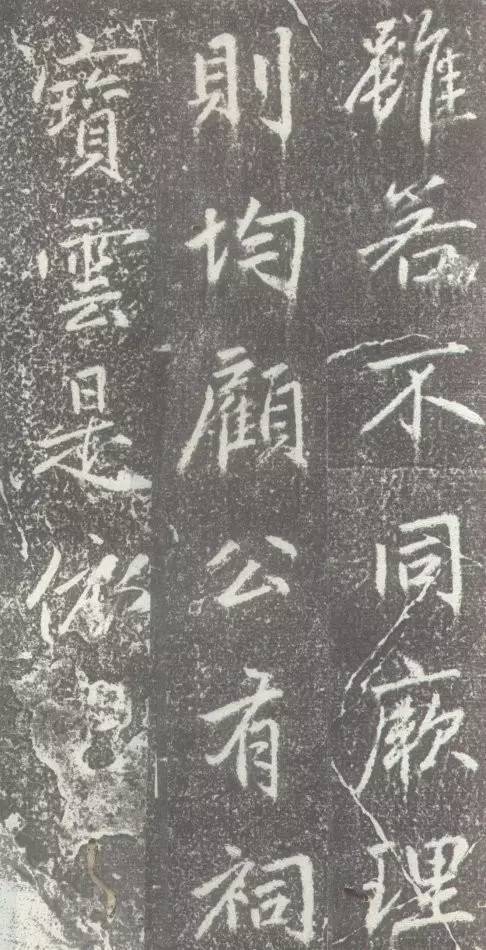 雖若不同厥理
則均顧公有祠
寶雲是